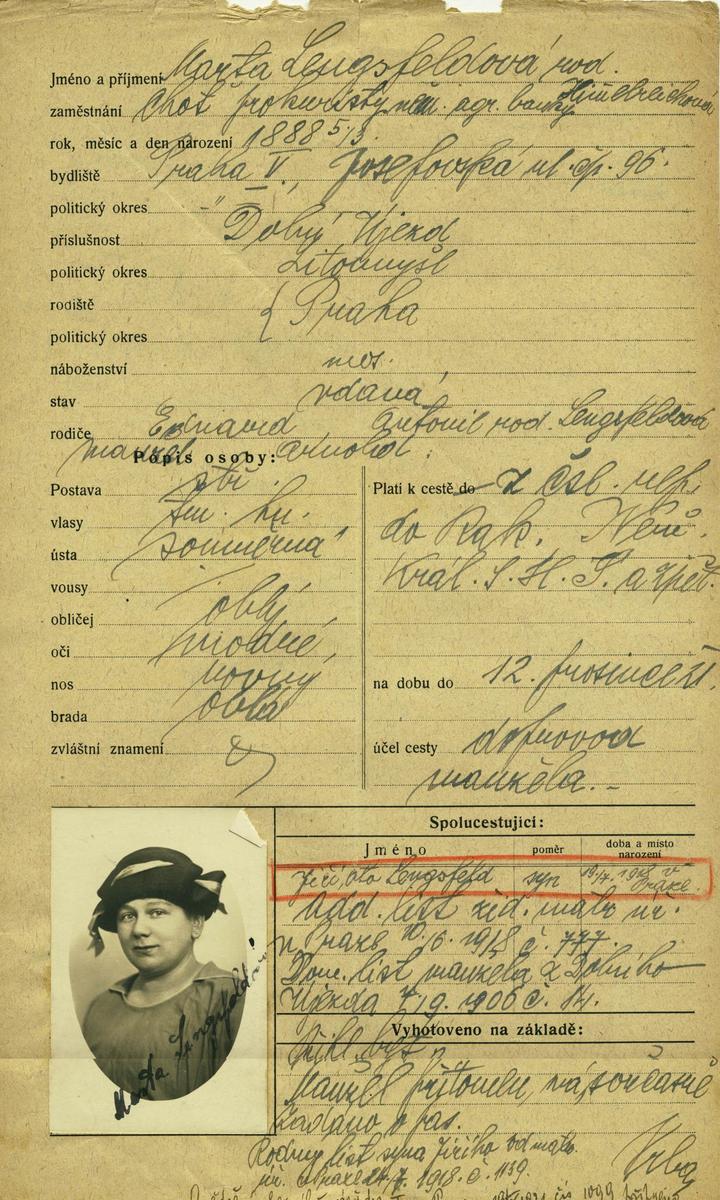 Jméno a příjmení Marta Lengsfeldová rod.
zaměstnání Choť prokuristy něm. agr. banky
rok, měsíc a den narození 1888 5/3.
bydliště Praha V., Josefovská ul. čp. 96.
politický okres "
příslušnost Dolný Újezd
politický okres Litomyšl
rodiště { Praha
politický okres
náboženství mos.
stav vdaná,
rodiče Eduard, rod. Lengsfeldová
manžel Arnold.
Popis osoby:
Postava stř.
vlasy tm. hn.
ústa souměrná
vousy
obličej oblý
oči modré,
nos rovný
brada oblá
zvláštní znamení
Platí k cestě do z čsl. rep.
do Rak. Něm.
Král. S. H. S. a zpět.
na dobu do 12. prosince 21.
účel cesty doprovod
manžela. -
Spolucestující:
Jméno poměr doba a místo narození
Jiří, Oto Lengsfeld syn 19./7. 1918 v Praze.
Odd. list žid. mat. úř.
v Praze 10./6. 1918 č. 777.
Dom. list manžela z Dolního
Újezda 7/9. 1906 č. 14.
Vyhotoveno na základě:
Manžel přítomen,
žádáno o pas.
Rodný list syna Jiřího od mat.
úř. v Praze 1918 č. 1139.
Marta Lengsfeld